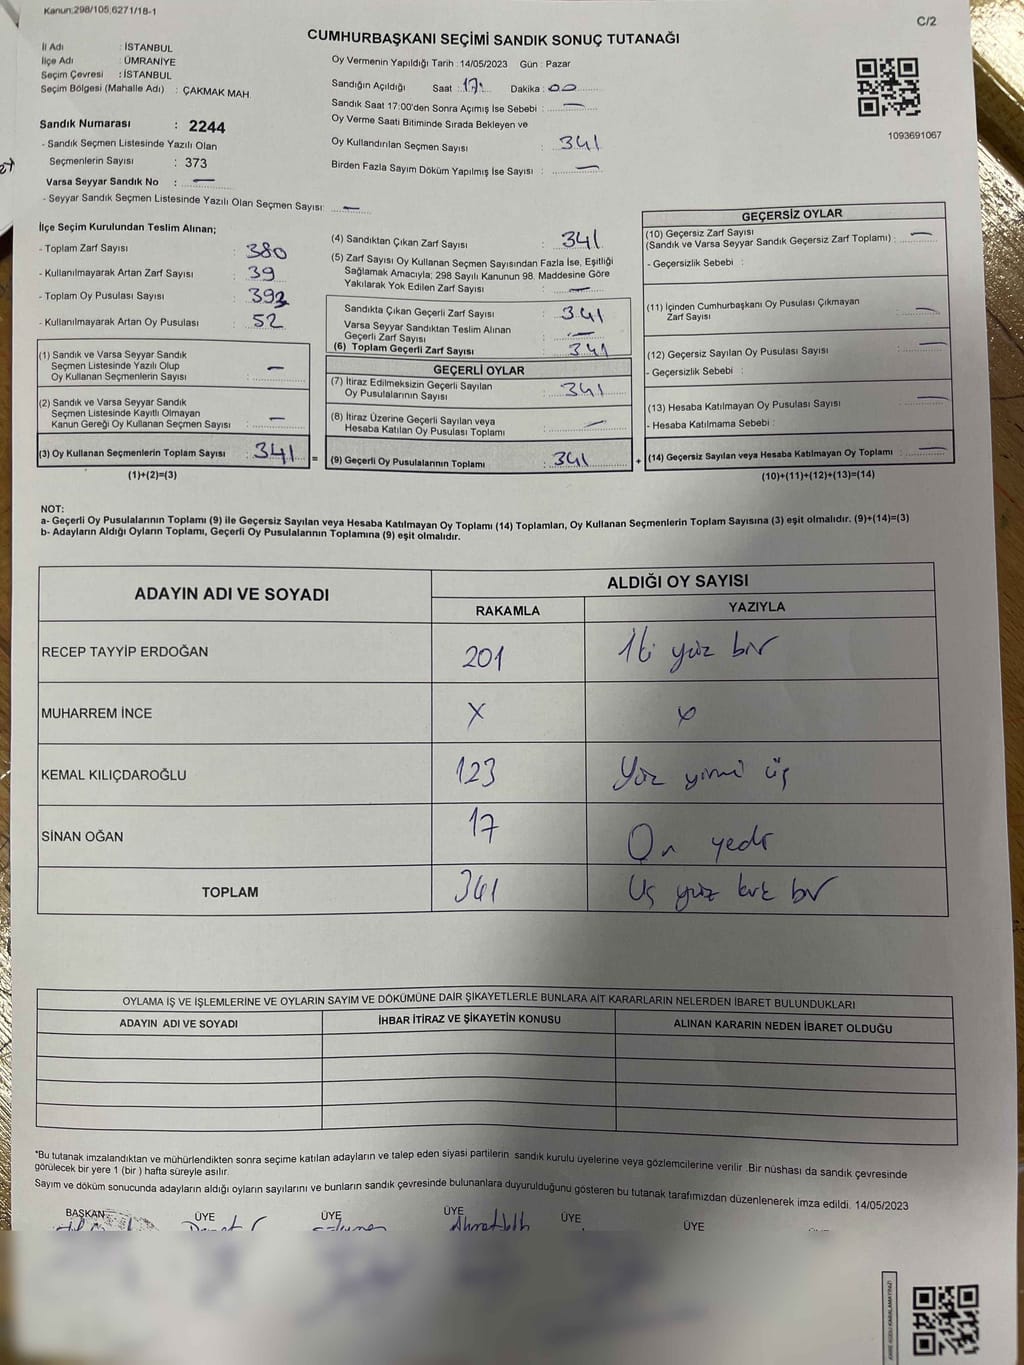 Kanun:298/105,6271/18-1
C/2
CUMHURBAŞKANI SEÇİMİ SANDIK SONUÇ TUTANAĞI
İl Adı : İSTANBUL
İlçe Adı : ÜMRANİYE
Seçim Çevresi : İSTANBUL
Seçim Bölgesi (Mahalle Adı) : ÇAKMAK MAH.
Sandık Numarası : 2244
- Sandık Seçmen Listesinde Yazılı Olan
Seçmenlerin Sayısı : 373
Varsa Seyyar Sandık No : —
- Seyyar Sandık Seçmen Listesinde Yazılı Olan Seçmen Sayısı: —
Oy Vermenin Yapıldığı Tarih : 14/05/2023 Gün : Pazar
Sandığın Açıldığı Saat : 17 Dakika : 00
Sandık Saat 17:00'den Sonra Açımış İse Sebebi : —
Oy Verme Saati Bitiminde Sırada Bekleyen ve
Oy Kullandırılan Seçmen Sayısı : 341
Birden Fazla Sayım Döküm Yapılmış İse Sayısı : —
1093691067
İlçe Seçim Kurulundan Teslim Alınan;
- Toplam Zarf Sayısı : 380
- Kullanılmayarak Artan Zarf Sayısı : 39
- Toplam Oy Pusulası Sayısı : 393
- Kullanılmayarak Artan Oy Pusulası : 52
(1) Sandık ve Varsa Seyyar Sandık
Seçmen Listesinde Yazılı Olup
Oy Kullanan Seçmenlerin Sayısı : —
(2) Sandık ve Varsa Seyyar Sandık
Seçmen Listesinde Kayıtlı Olmayan
Kanun Gereği Oy Kullanan Seçmen Sayısı : —
(3) Oy Kullanan Seçmenlerin Toplam Sayısı : 341 =
(1)+(2)=(3)
(4) Sandıktan Çıkan Zarf Sayısı : 341
(5) Zarf Sayısı Oy Kullanan Seçmen Sayısından Fazla İse, Eşitliği
Sağlamak Amacıyla; 298 Sayılı Kanunun 98. Maddesine Göre
Yakılarak Yok Edilen Zarf Sayısı : —
Sandıkta Çıkan Geçerli Zarf Sayısı : 341
Varsa Seyyar Sandıktan Teslim Alınan
Geçerli Zarf Sayısı : —
(6) Toplam Geçerli Zarf Sayısı : 341
GEÇERLİ OYLAR
(7) İtiraz Edilmeksizin Geçerli Sayılan
Oy Pusulalarının Sayısı : 341
(8) İtiraz Üzerine Geçerli Sayılan veya
Hesaba Katılan Oy Pusulası Toplamı : —
(9) Geçerli Oy Pusulalarının Toplamı : 341 +
GEÇERSİZ OYLAR
(10) Geçersiz Zarf Sayısı
(Sandık ve Varsa Seyyar Sandık Geçersiz Zarf Toplamı) : —
- Geçersizlik Sebebi :
(11) İçinden Cumhurbaşkanı Oy Pusulası Çıkmayan
Zarf Sayısı : —
(12) Geçersiz Sayılan Oy Pusulası Sayısı : —
- Geçersizlik Sebebi :
(13) Hesaba Katılmayan Oy Pusulası Sayısı : —
- Hesaba Katılmama Sebebi :
(14) Geçersiz Sayılan veya Hesaba Katılmayan Oy Toplamı : —
(10)+(11)+(12)+(13)=(14)
NOT:
a- Geçerli Oy Pusulalarının Toplamı (9) ile Geçersiz Sayılan veya Hesaba Katılmayan Oy Toplamı (14) Toplamları, Oy Kullanan Seçmenlerin Toplam Sayısına (3) eşit olmalıdır. (9)+(14)=(3)
b- Adayların Aldığı Oyların Toplamı, Geçerli Oy Pusulalarının Toplamına (9) eşit olmalıdır.
ADAYIN ADI VE SOYADI
ALDIĞI OY SAYISI
RAKAMLA YAZIYLA
RECEP TAYYİP ERDOĞAN 201 İki yüz bir
MUHARREM İNCE X X
KEMAL KILIÇDAROĞLU 123 Yüz yirmi üç
SİNAN OĞAN 17 On yedi
TOPLAM 341 Üç yüz kırk bir
OYLAMA İŞ VE İŞLEMLERİNE VE OYLARIN SAYIM VE DÖKÜMÜNE DAİR ŞİKAYETLERLE BUNLARA AİT KARARLARIN NELERDEN İBARET BULUNDUKLARI
ADAYIN ADI VE SOYADI İHBAR İTİRAZ VE ŞİKAYETİN KONUSU ALINAN KARARIN NEDEN İBARET OLDUĞU
*Bu tutanak imzalandıktan ve mühürlendikten sonra seçime katılan adayların ve talep eden siyasi partilerin sandık kurulu üyelerine veya gözlemcilerine verilir .Bir nüshası da sandık çevresinde
görülecek bir yere 1 (bir ) hafta süreyle asılır.
Sayım ve döküm sonucunda adayların aldığı oyların sayılarını ve bunların sandık çevresinde bulunanlara duyurulduğunu gösteren bu tutanak tarafımızdan düzenlenerek imza edildi. 14/05/2023
BAŞKAN ÜYE ÜYE ÜYE ÜYE ÜYE